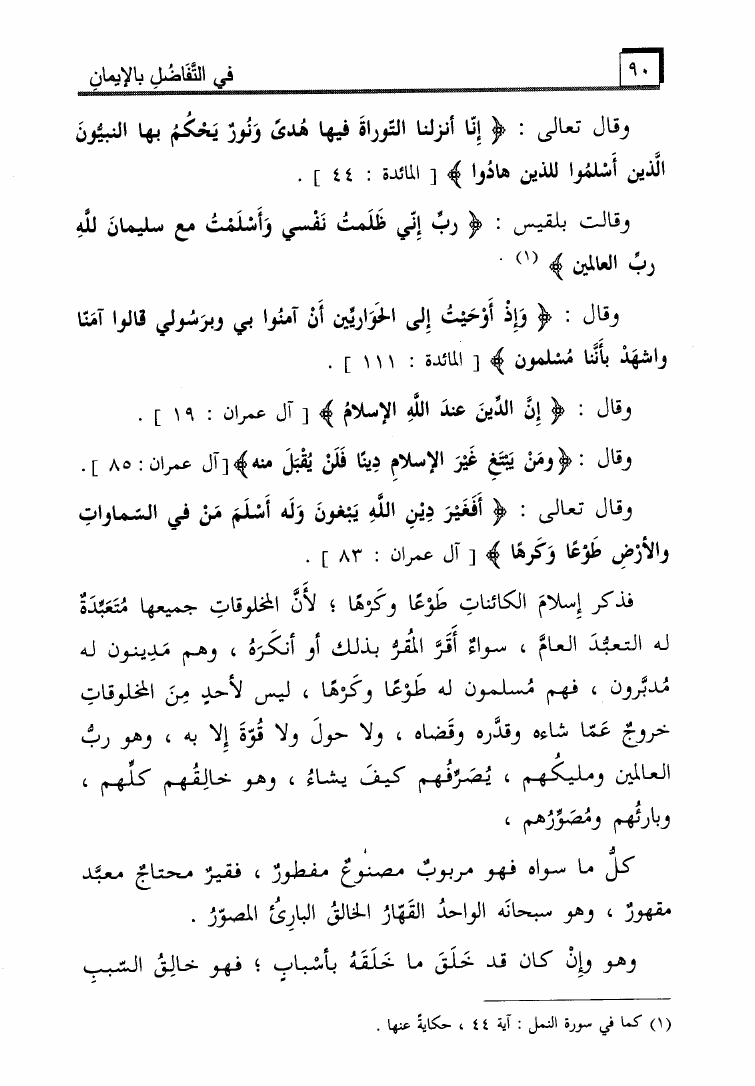 ٩٠
في التَّفَاضُلِ بالإيمانِ
وقال تعالى : ﴿ إِنّا أنزلنا التّوراةَ فيها هُدىً وَنُورٌ يَحْكُمُ بها النبيُّونَ
الَّذين أَسْلمُوا للذين هادُوا ﴾ [ المائدة : ٤٤ ] .
وقالت بلقيس : ﴿ ربِّ إِنّي ظَلَمتُ نَفْسي وَأَسْلَمْتُ مع سليمانَ للَّهِ
ربِّ العالمين ﴾ (١) .
وقال : ﴿ وَإِذْ أَوْحَيْتُ إلى الحَوَاريِّين أَنْ آمنُوا بي وبرَسُولي قالوا آمَنّا
واشهَدْ بأَنَّنا مُسْلمون ﴾ [ المائدة : ١١١ ] .
وقال : ﴿ إِنَّ الدِّينَ عندَ اللَّهِ الإِسلامُ ﴾ [ آل عمران : ١٩ ] .
وقال : ﴿ ومَنْ يَبْتَغِ غَيْرَ الإسلامِ دِينًا فَلَنْ يُقْبَلَ منه ﴾ [آل عمران: ٨٥ ].
وقال تعالى : ﴿ أَفَغَيْرَ دِيْنِ اللَّهِ يَبْغونَ وَلَه أَسْلَمَ مَنْ في السّماواتِ
والأرْضِ طَوْعًا وَكَرهًا ﴾ [ آل عمران : ٨٣ ] .
فذكر إِسلامَ الكائناتِ طَوْعًا وكَرْهًا ؛ لأنَّ المخلوقاتِ جميعها مُتَعَبِّدَةٌ
له التعبُّدَ العامَّ ، سواءٌ أَقَرَّ المُقرُّ بذلك أو أنكَرَهُ ، وهم مَدِينون له
مُدبَّرون ، فهم مُسلمون له طَوْعًا وكَرْهًا ، ليس لأحدٍ مِنَ المخلوقاتِ
خروجٌ عَمّا شاءه وقدَّره وقَضاه ، ولا حولَ ولا قُوّةَ إِلا به ، وهو ربُّ
العالمين ومليكُهم ، يُصَرِّفُهم كيفَ يشاءُ ، وهو خالِقُهم كلِّهم ،
وبارئُهم ومُصَوِّرُهم ،
كلُّ ما سواه فهو مربوبٌ مصنوعٌ مفطورٌ ، فقيرٌ محتاجٌ معبَّد
مقهورٌ ، وهو سبحانَه الواحدُ القَهّارُ الخالقُ البارِئُ المصوّرُ .
وهو وإِنْ كان قد خَلَقَ ما خَلَقَهُ بأَسْبابٍ ؛ فهو خالِقُ السّببِ
(١) كما في سورة النمل : آية ٤٤ ، حكايةً عنها .